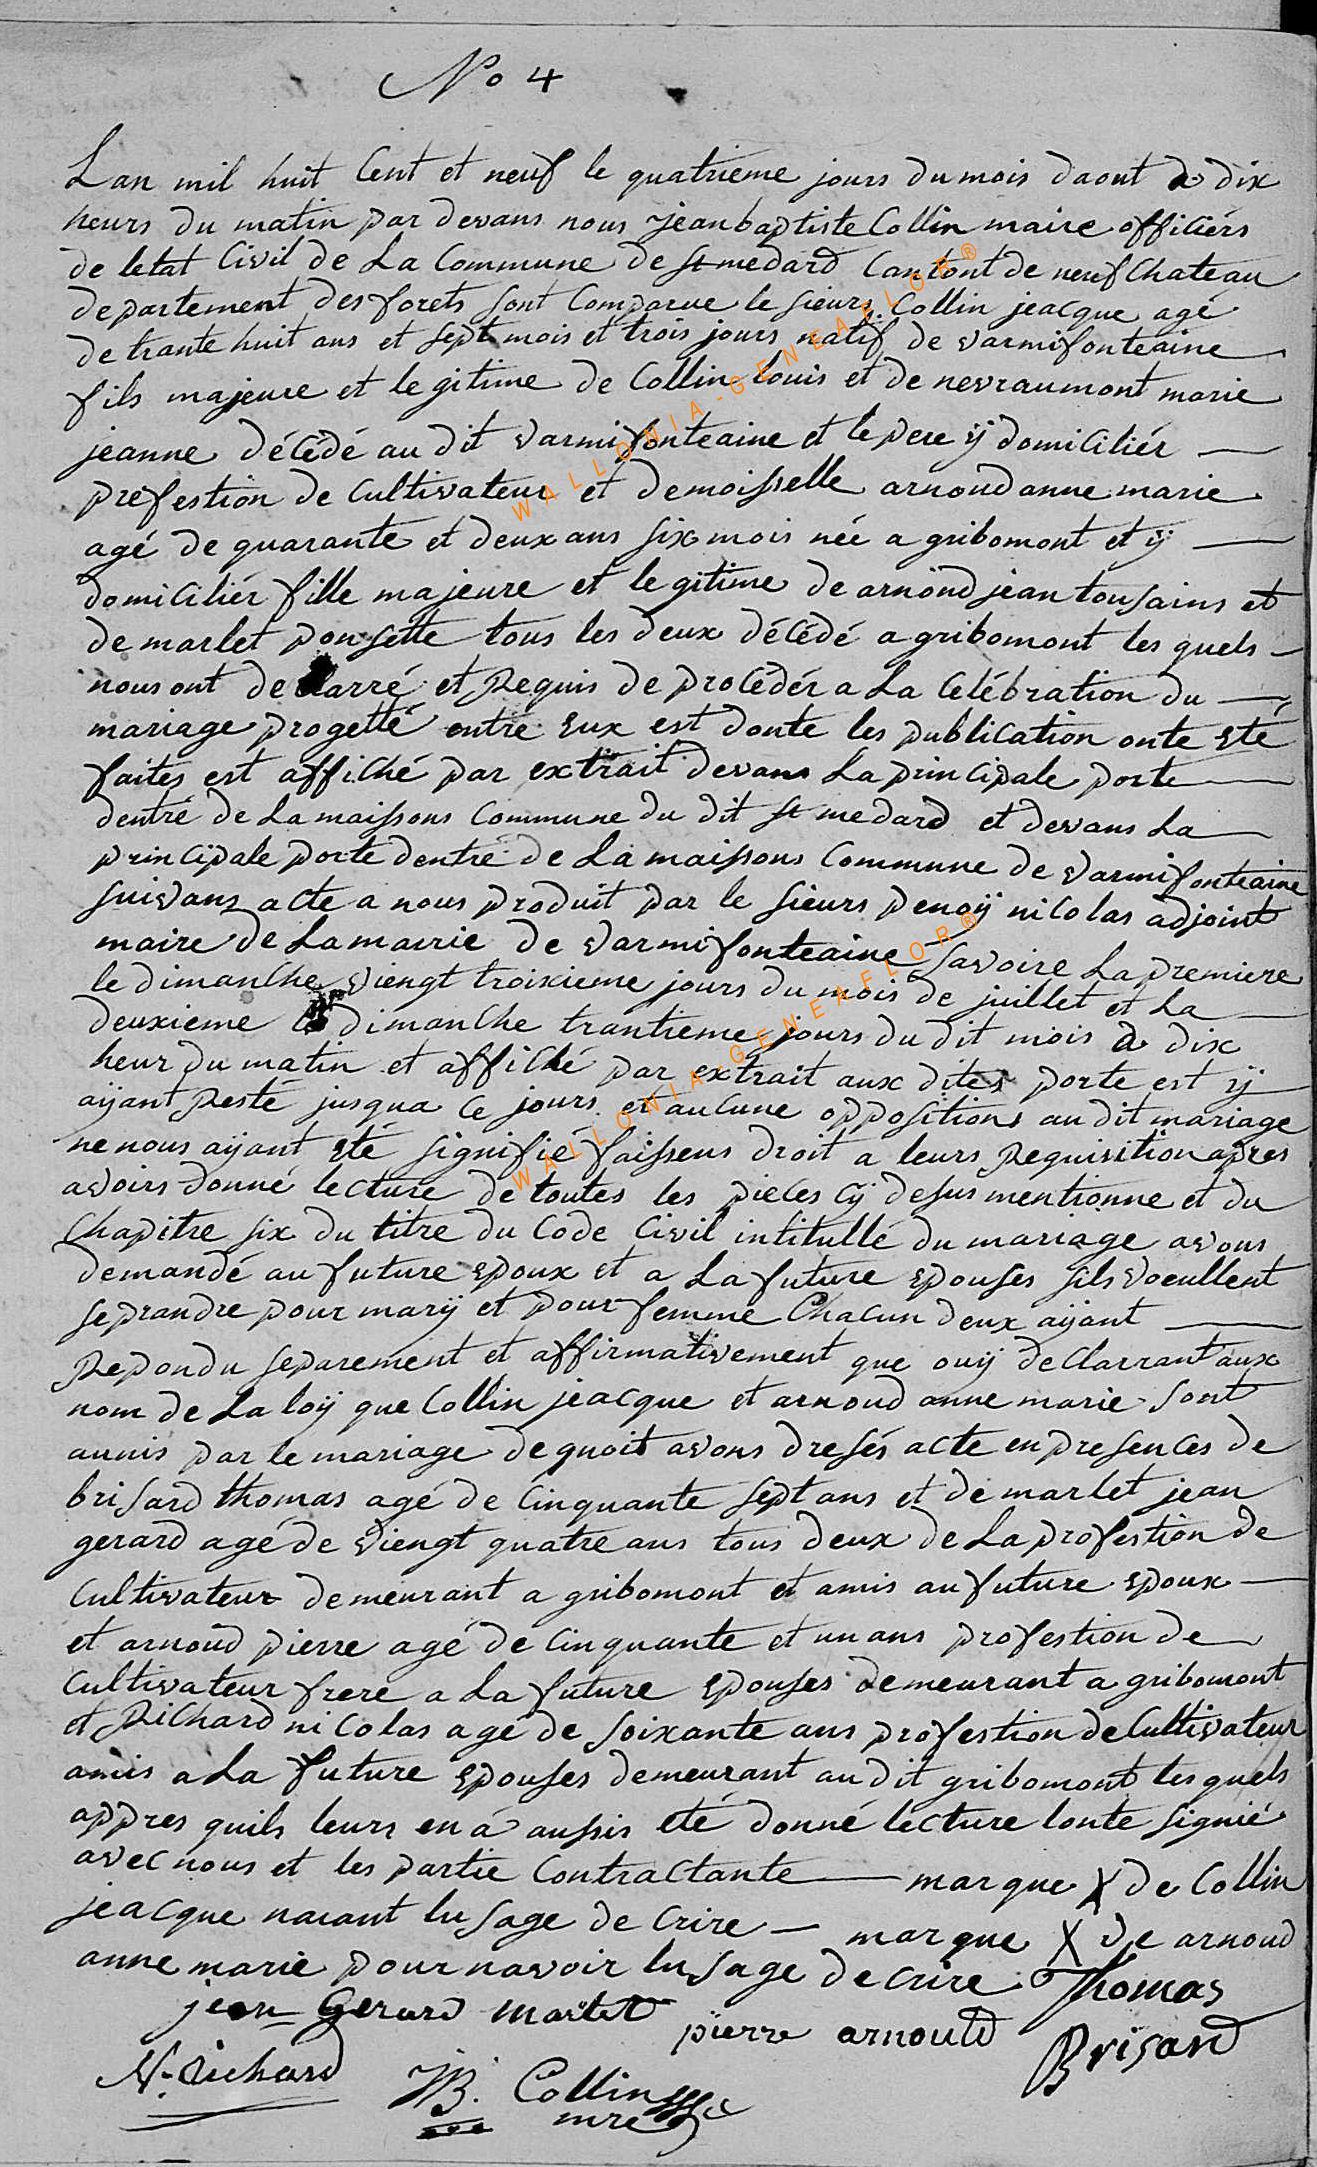 No 4
Lan mil huit Cent et neuf le quatrieme jours du mois daout a dix
heurs du matin par devans nous jeanbaptiste Collin maire officiérs
de letat Civil de La Commune de st medard Cantont de neufChateau
departement des forets sont Comparue le sieurs Collin jeacque agé
de trante huit ans et sept mois et trois jours natif de varmifonteaine
fils majeure et legitime de Collin louis et de nevraumont marie
jeanne décédé au dit varmifonteaine et le pere ÿ domiciliér —
profestion de Cultivateur et demoisselle arnoud anne marie
agé de quarante et deux ans six mois née a gribomont et ÿ —
domiciliér fille majeure et legitime de arnoud jean tousains et
de marlet ponsette tous les deux décédé a gribomont les quels —
nous ont declarré et Requis de procédér a La Celébration du —
mariage progetté entre eux est donte les publication onte eté
faites est affiché par extrait devans La principale porte —
dentré de La maissons Commune du dit st medard et devans La —
principale porte dentré de La maissons Commune de varmifonteaine
suivans acte a nous produit par le sieurs penoÿ nicolas adjoint
maire de La mairie de varmifonteaine savoire La premiere
le dimanche viengt troixieme jours du mois de juillet et La —
deuxieme le dimanche trantieme jours du dit mois a dix
heur du matin et affiché par extrait aux dites porte est ÿ
aÿant Resté jusqua Ce jours et aucune oppositions au dit mariage
ne nous aÿant eté signifié faissens droit a leurs Requisition apres
avoirs donné lecture de toutes les pieces Cÿ desus mentionne et du
Chapitre six du titre du Code Civil intitullé du mariage avons
demandé au future epoux et a La future epouses sils voeullent
se prandre pour marÿ et pour femme Chacun deux aÿant —
Repondu separement et affirmativement que ouÿ declarrant aux
nom de La loÿ que Collin jeacque et arnoud anne marie sont
aunis par le mariage de quoit avons dresés acte en presences de
brisard thomas agé de Cinquante sept ans et de marlet jean
gerard agé de viengt quatre ans tous deux de La profestion de
Cultivateur demeurant a gribomont et amis au future epoux —
et arnoud pierre agé de Cinquante et un ans profestion de —
Cultivateur frere a La future epouses demeurant a gribomont
et Richard nicolas agé de soixante ans profestion de Cultivateur
amis a La future epouses demeurant au dit gribomont les quels
appres quils leurs en á aussis eté donné lecture lonte signié
avec nous et les partie Contractante — marque X de Collin
jeacque naiant lusage de Crire — marque X de arnoud
anne marie pour navoir lusage de crire Thomas
jean Gerard marlet pierre arnould Brisard
N. Richard JB. Collin
mre
WALLONIA-GENEAFLOR®
WALLONIA-GENEAFLOR®